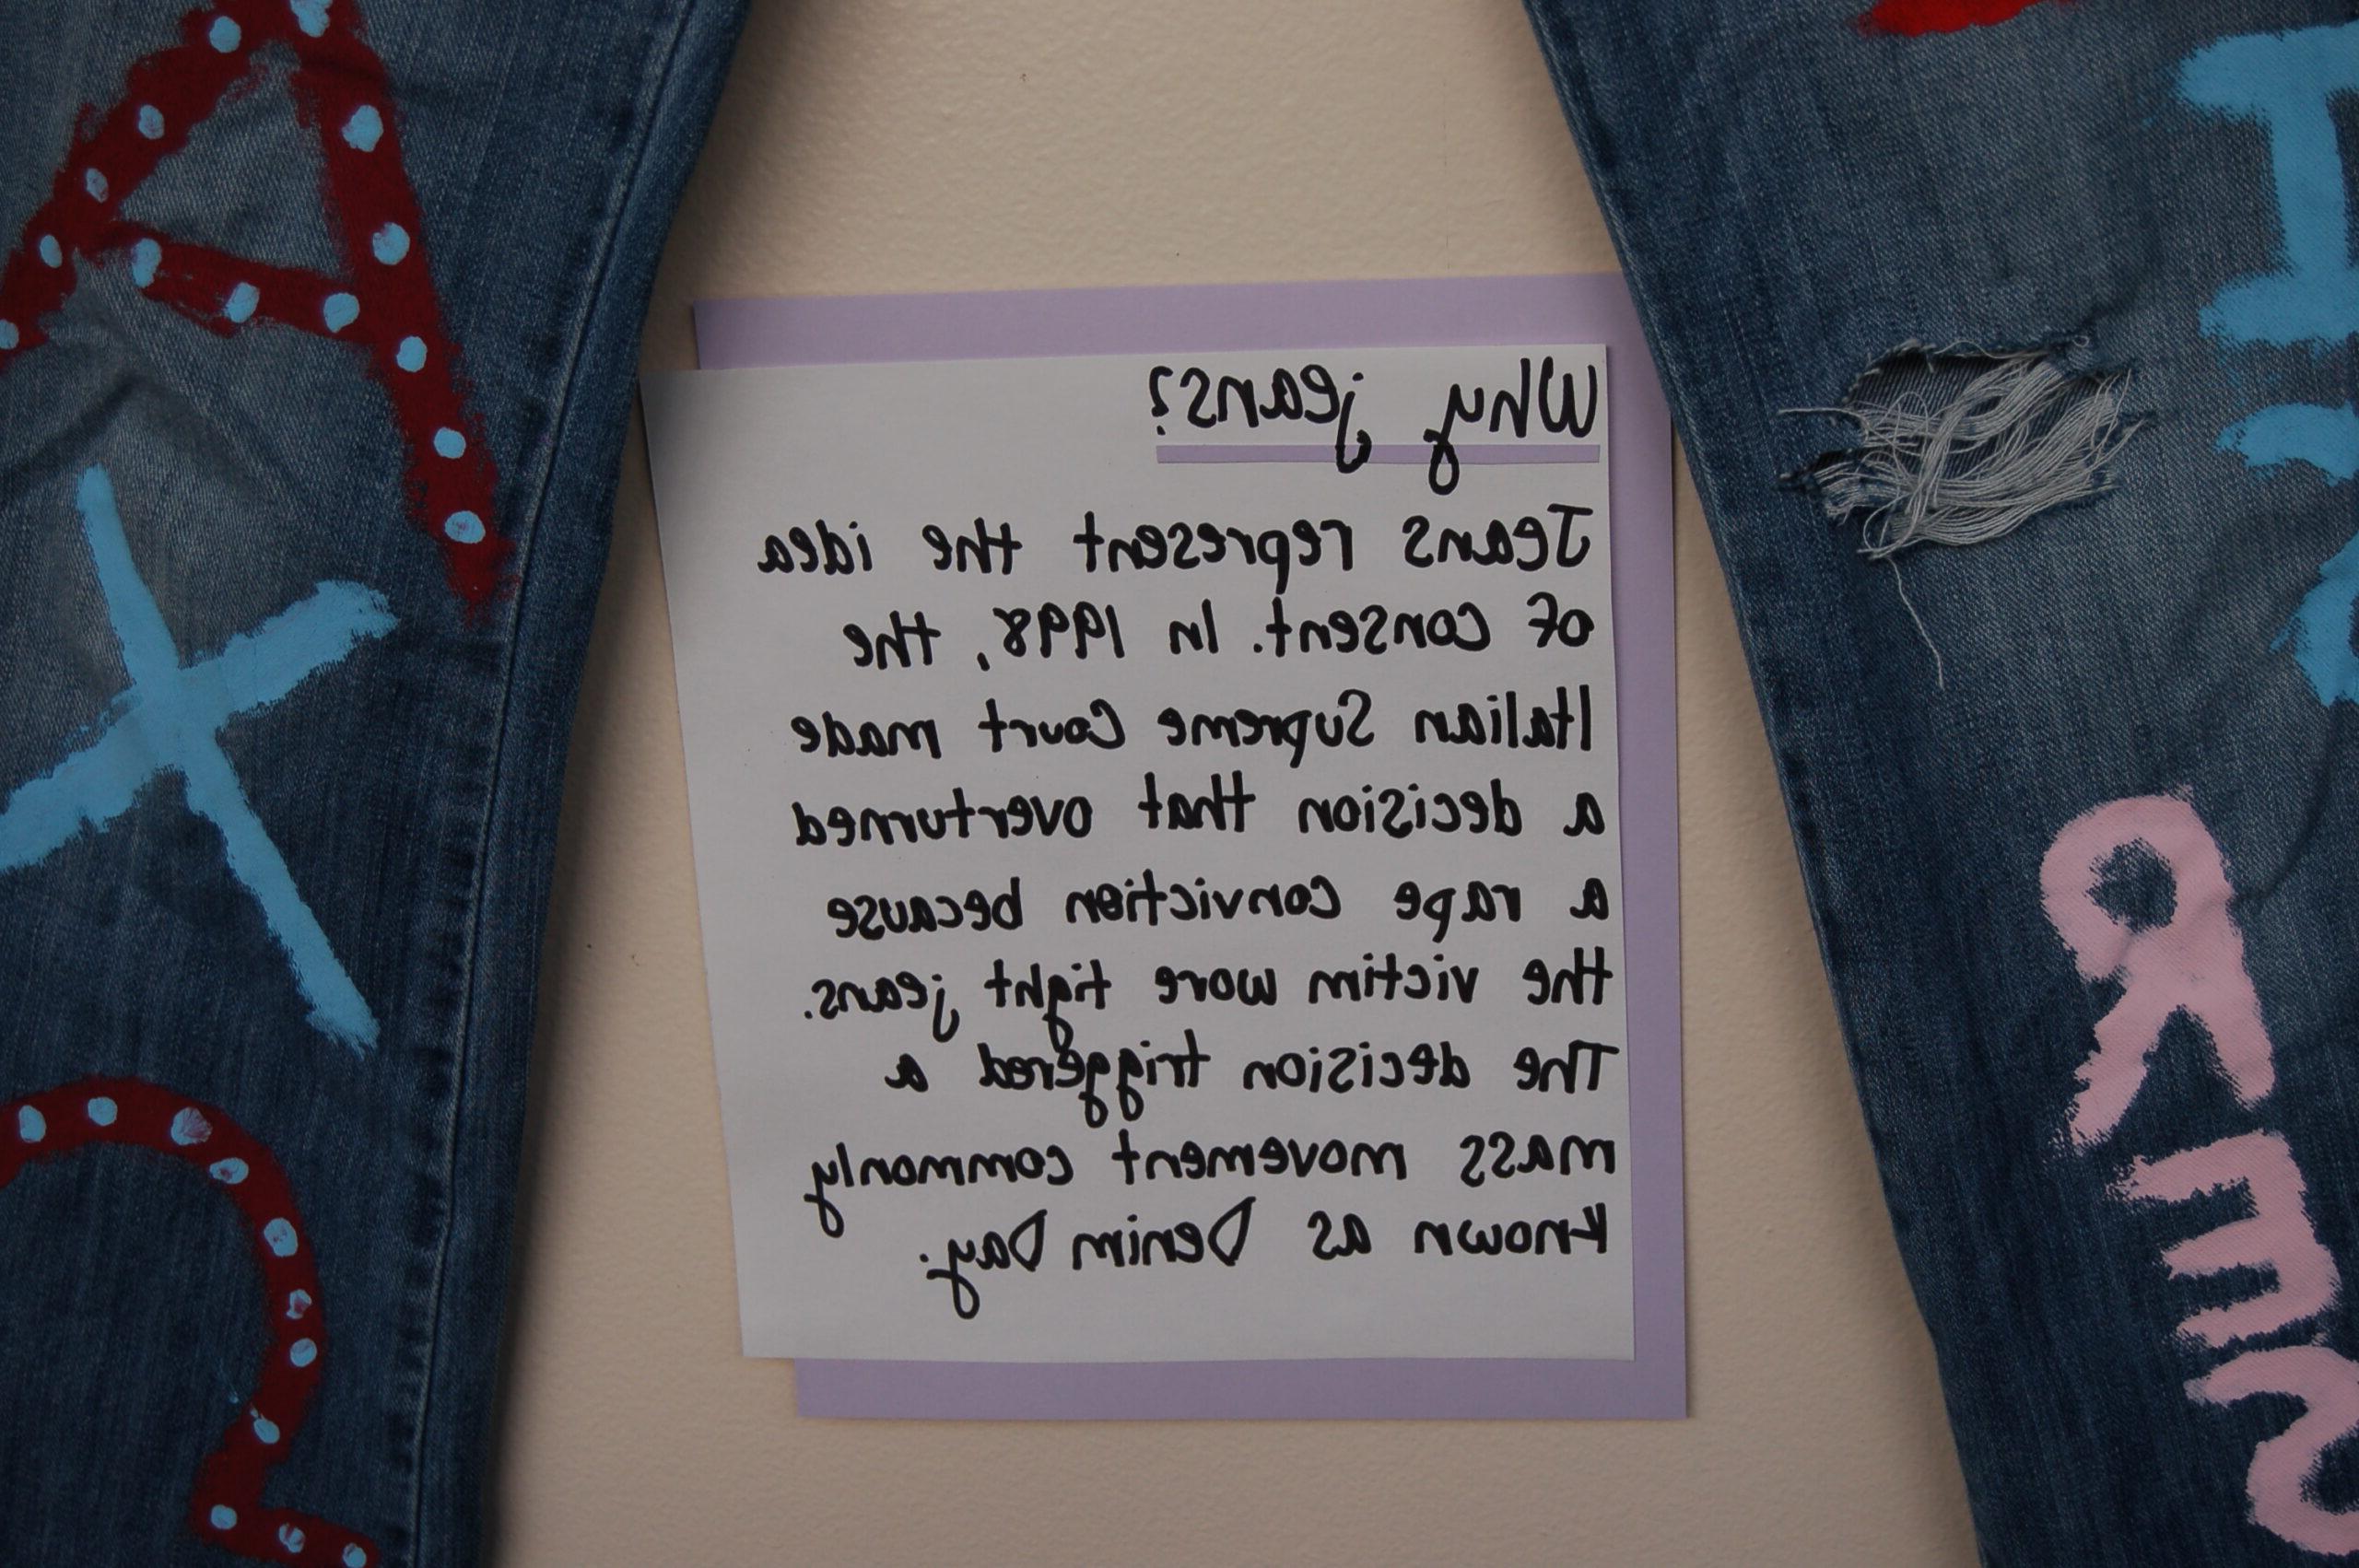 Why jeans?
Jeans represent the idea
of consent. In 1998, the
Italian Supreme Court made
a decision that overturned
a rape conviction because
the victim wore tight jeans.
The decision triggered a
mass movement commonly
known as Denim Day.